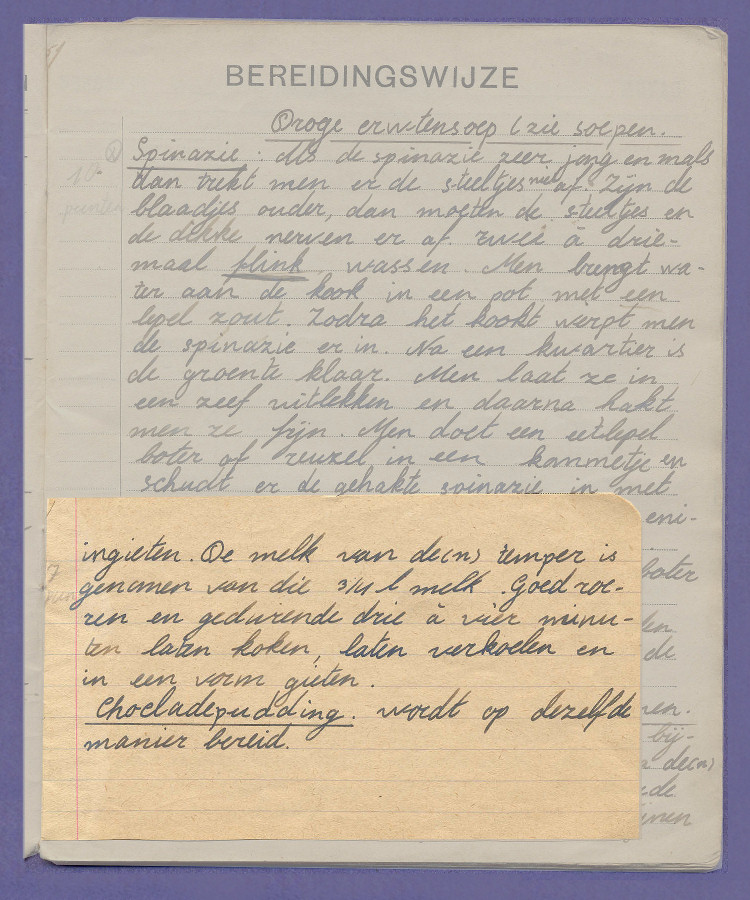 BEREIDINGSWIJZE
Droge erwtensoep (zie soepen.
Spinazie : Als de spinazie zeer jong en mals
dan trekt men er de steeltjes niet af. Zijn de
blaadjes ouder, dan moeten de steeltjes en
de dikke nerven er af. twee à drie-
maal flink wassen. Men brengt wa-
ter aan de kook in een pot met een
lepel zout. Zodra het kookt werpt men
de spinazie er in. Na een kwartier is
de groente klaar. Men laat ze in
een zeef uitlekken en daarna hakt
men ze fijn. Men doet een eetlepel
boter of reuzel in een kommetje en
schudt er de gehakte spinazie in met
eni-
boter
den
de
nen.
bij-
de(n)
ingieten. De melk van de(n) temper is
genomen van die 3/4 l melk. Goed roe-
ren en gedurende drie à vier minu-
ten laten koken, laten verkoelen en
in een vorm gieten.
Chocladepudding. wordt op dezelfde
manier bereid.